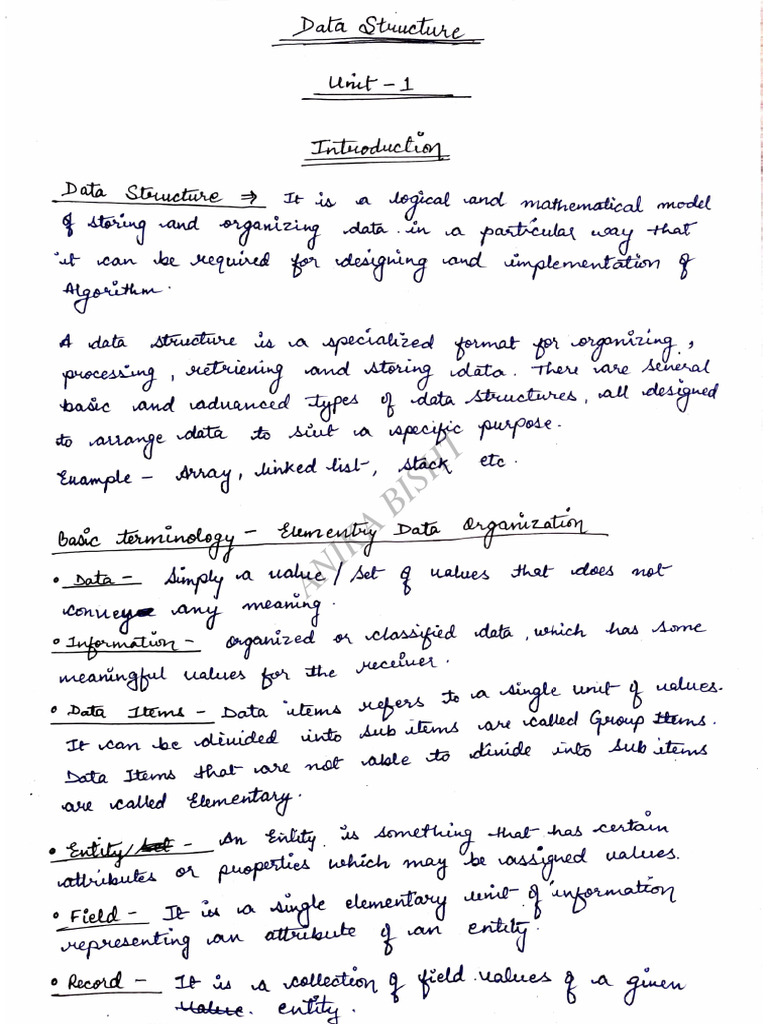 Data Structure
Unit - 1
Introduction
Data Structure ⇒ It is a logical and mathematical model
of storing and organizing data in a particular way that
it can be required for designing and implementation of
Algorithm.
A data structure is a specialized format for organizing,
processing, retrieving and storing data. There are several
basic and advanced types of data structures, all designed
to arrange data to siut a specific purpose.
Example - Array, linked list, stack etc.
ANIKA BISHT
Basic terminology - Elementry Data Organization
• Data - Simply a value / set of values that does not
convey any meaning.
• Information - Organized or classified data, which has some
meaningful values for the receiver.
• Data Items - Data items refers to a single unit of values.
It can be divided into sub items are called Group Items.
Data Items that are not able to divide into sub items
are called Elementary.
• Entity/ - An Entity is something that has certain
attributes or properties which may be assigned values.
• Field - It is a single elementary unit of information
representing an attribute of an entity.
• Record - It is a collection of field values of a given
value. entity.